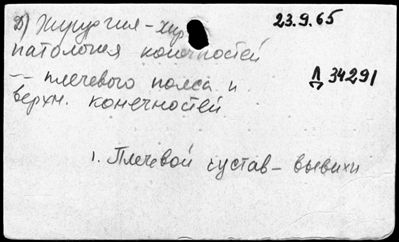 д) Хирургия - хир
23.9.65
патология конечностей
-- плечевого пояса и
Д 34291
верхн. конечностей
1. Плечевой сустав - вывихи